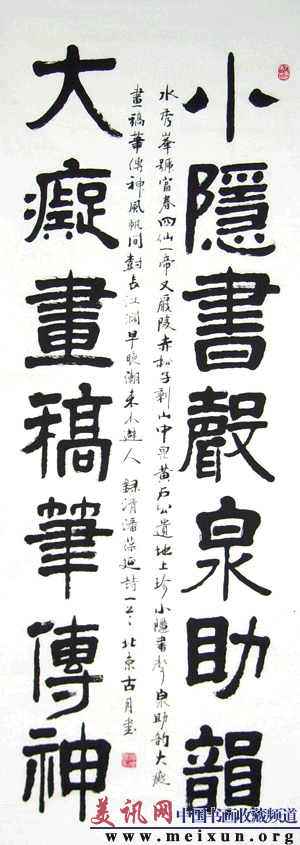 小隱書聲泉助韻
水秀峯號富春四仙一帝又嚴陵赤松子剩山中泉黄石公遺地上珍小隱書聲泉助韵大癡
畫稿筆傳神風帆同對長江濶早晚潮來不避人 録清潘葆延詩一首 北京古月書
大癡畫稿筆傳神
美讯网
中国书画收藏频道
www.meixun.org